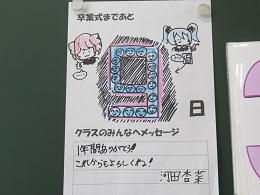 卒業式まであと
9
日
クラスのみんなへメッセージ
1年間ありがとう!
これからもよろしくね!
河田杏菜